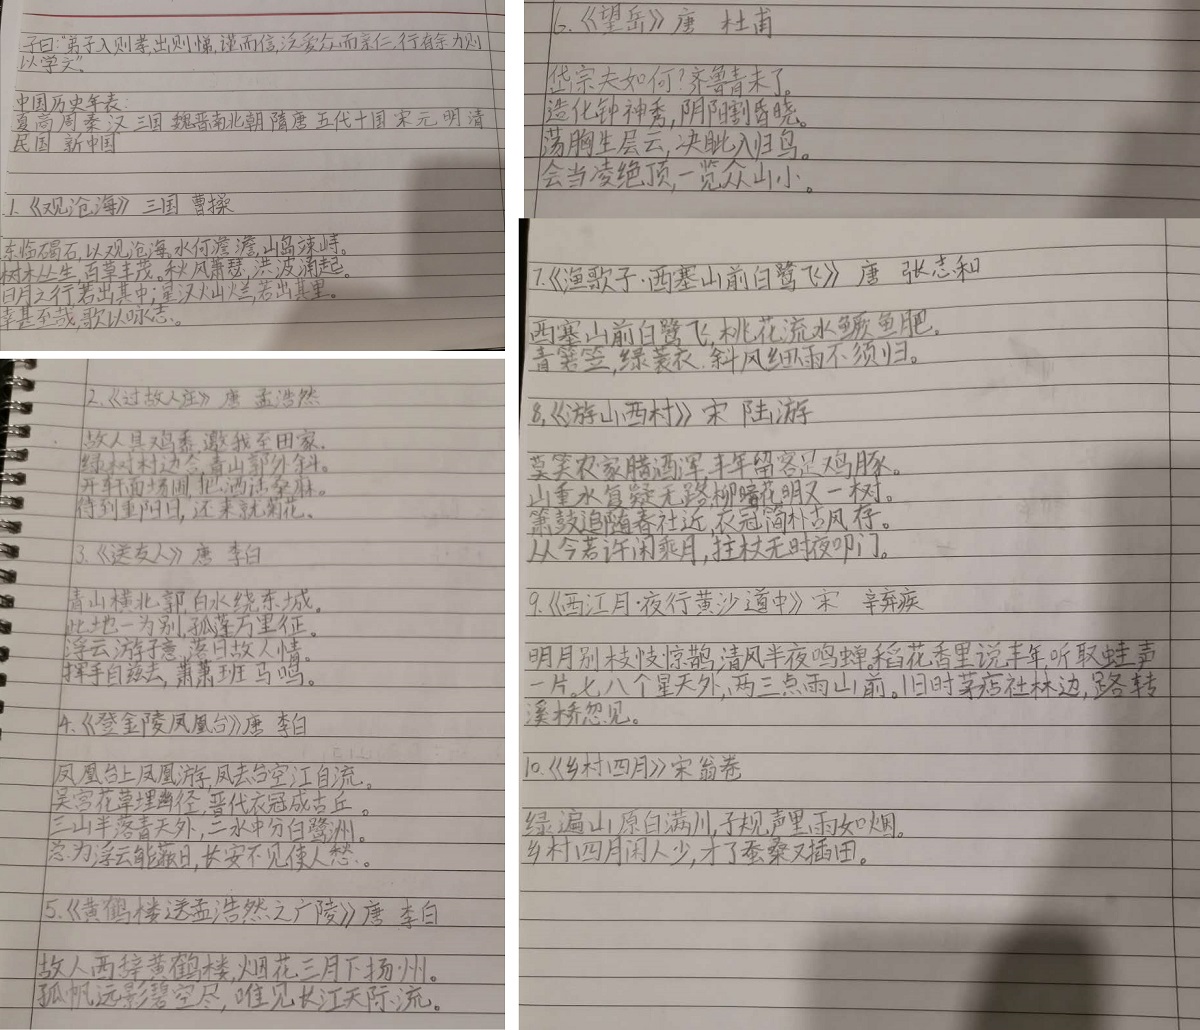 子曰:“弟子入则孝,出则悌,谨而信,泛爱众而亲仁,行有余力则
以学文”。
中国历史年表:
夏商周秦汉 三国 魏晋南北朝 隋唐 五代十国 宋元明清
民国 新中国
1.《观沧海》 三国 曹操
东临碣石,以观沧海,水何澹澹,山岛竦峙。
树木丛生,百草丰茂。秋风萧瑟,洪波涌起。
日月之行若出其中;星汉灿烂,若出其里。
幸甚至哉,歌以咏志。
2.《过故人庄》 唐 孟浩然
故人具鸡黍,邀我至田家.
绿树村边合,青山郭外斜。
开轩面场圃,把酒话桑麻。
待到重阳日,还来就菊花。
3.《送友人》唐 李白
青山横北郭,白水绕东城。
此地一为别,孤蓬万里征。
浮云游子意,落日故人情。
挥手自兹去,萧萧班马鸣。
4.《登金陵凤凰台》唐 李白
凤凰台上凤凰游,凤去台空江自流。
吴宫花草埋幽径,晋代衣冠成古丘。
三山半落青天外,二水中分白鹭洲。
总为浮云能蔽日,长安不见使人愁。
5.《黄鹤楼送孟浩然之广陵》唐 李白
故人西辞黄鹤楼,烟花三月下扬州。
孤帆远影碧空尽,唯见长江天际流。
6.《望岳》唐 杜甫
岱宗夫如何?齐鲁青未了。
造化钟神秀,阴阳割昏晓。
荡胸生层云,决眦入归鸟。
会当凌绝顶,一览众山小。
7.《渔歌子·西塞山前白鹭飞》 唐 张志和
西塞山前白鹭飞,桃花流水鳜鱼肥。
青箬笠,绿蓑衣.斜风细雨不须归。
8.《游山西村》宋 陆游
莫笑农家腊酒浑,丰年留客足鸡豚。
山重水复疑无路,柳暗花明又一村。
箫鼓追随春社近,衣冠简朴古风存。
从今若许闲乘月,拄杖无时夜叩门。
9.《西江月·夜行黄沙道中》宋 辛弃疾
明月别枝惊鹊,清风半夜鸣蝉,稻花香里说丰年,听取蛙声
一片。七八个星天外,两三点雨山前。旧时茅店社林边,路转
溪桥忽见。
10.《乡村四月》宋翁卷
绿遍山原白满川,子规声里雨如烟。
乡村四月闲人少,才了蚕桑又插田。